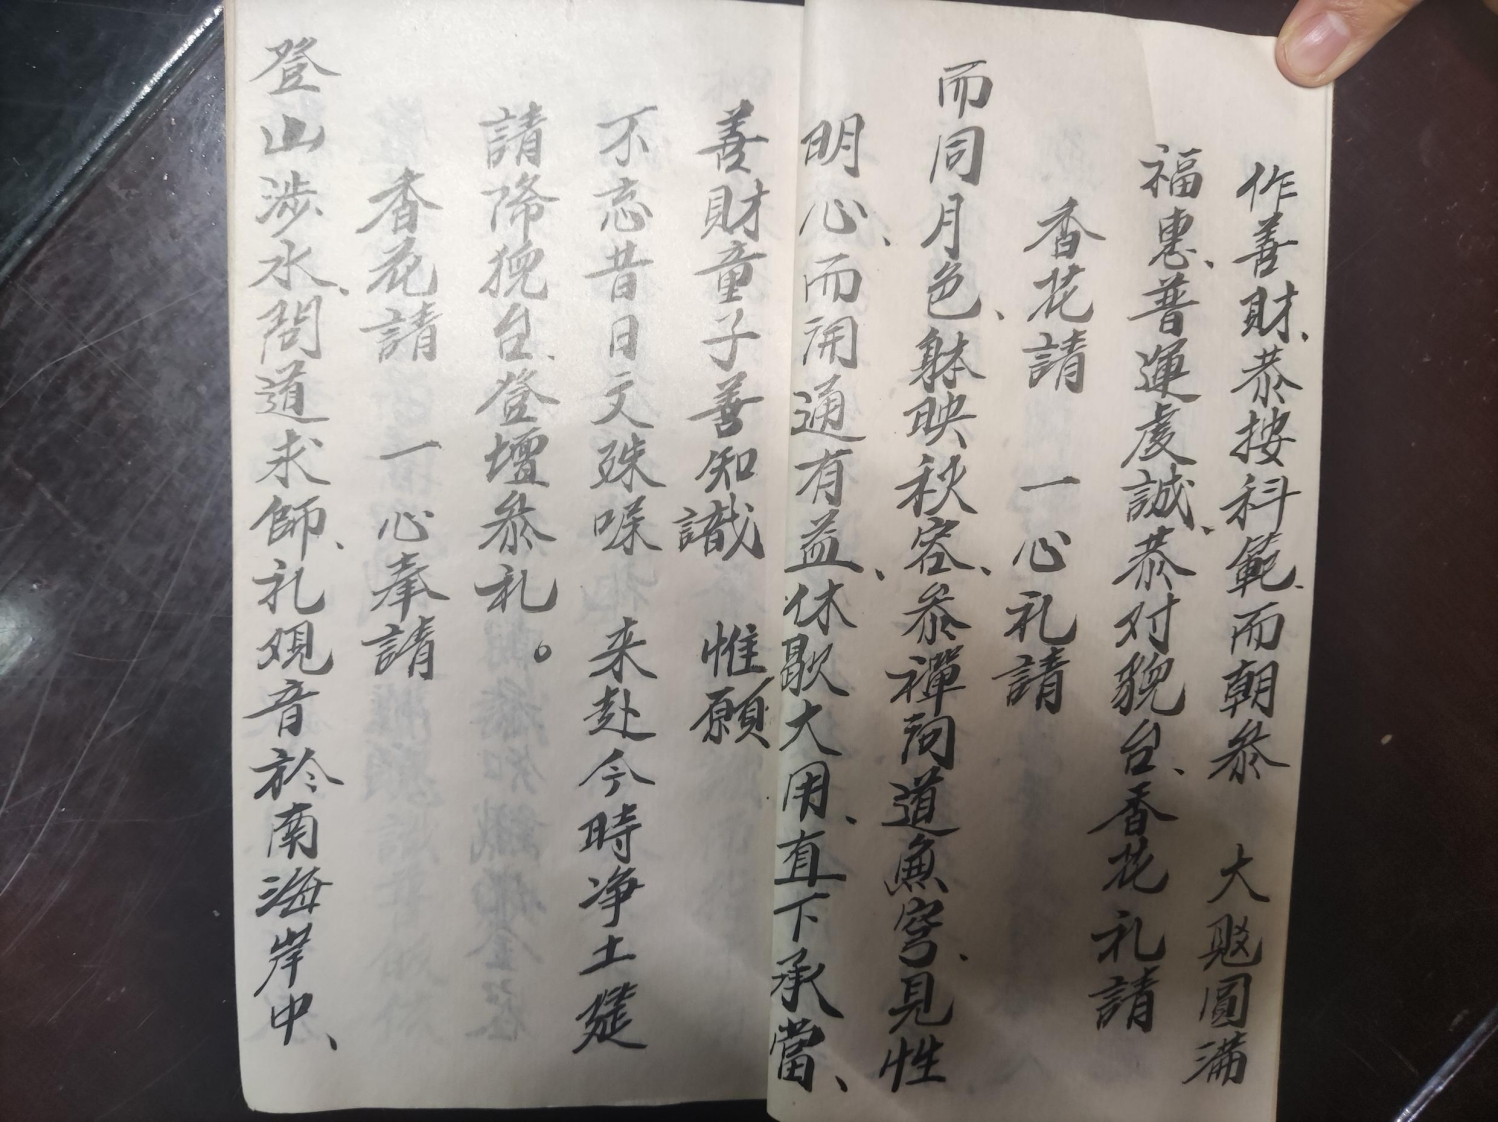 作善財、恭按科範、而朝叅 大 圓滿
福惠、普運虔誠、恭对貌台、香花礼請
香花請 一心礼請
而同月色、躰映秋容、叅禪问道魚穹、見性
明心、而開通有益、休歇大用、直下承當、
善財童子善知識 惟願
不忘昔日文殊 来赴今時净土筵
請降猊台、登壇叅礼。
香花請 一心奉請
登山涉水、問道求師、礼观音於南海岸中、